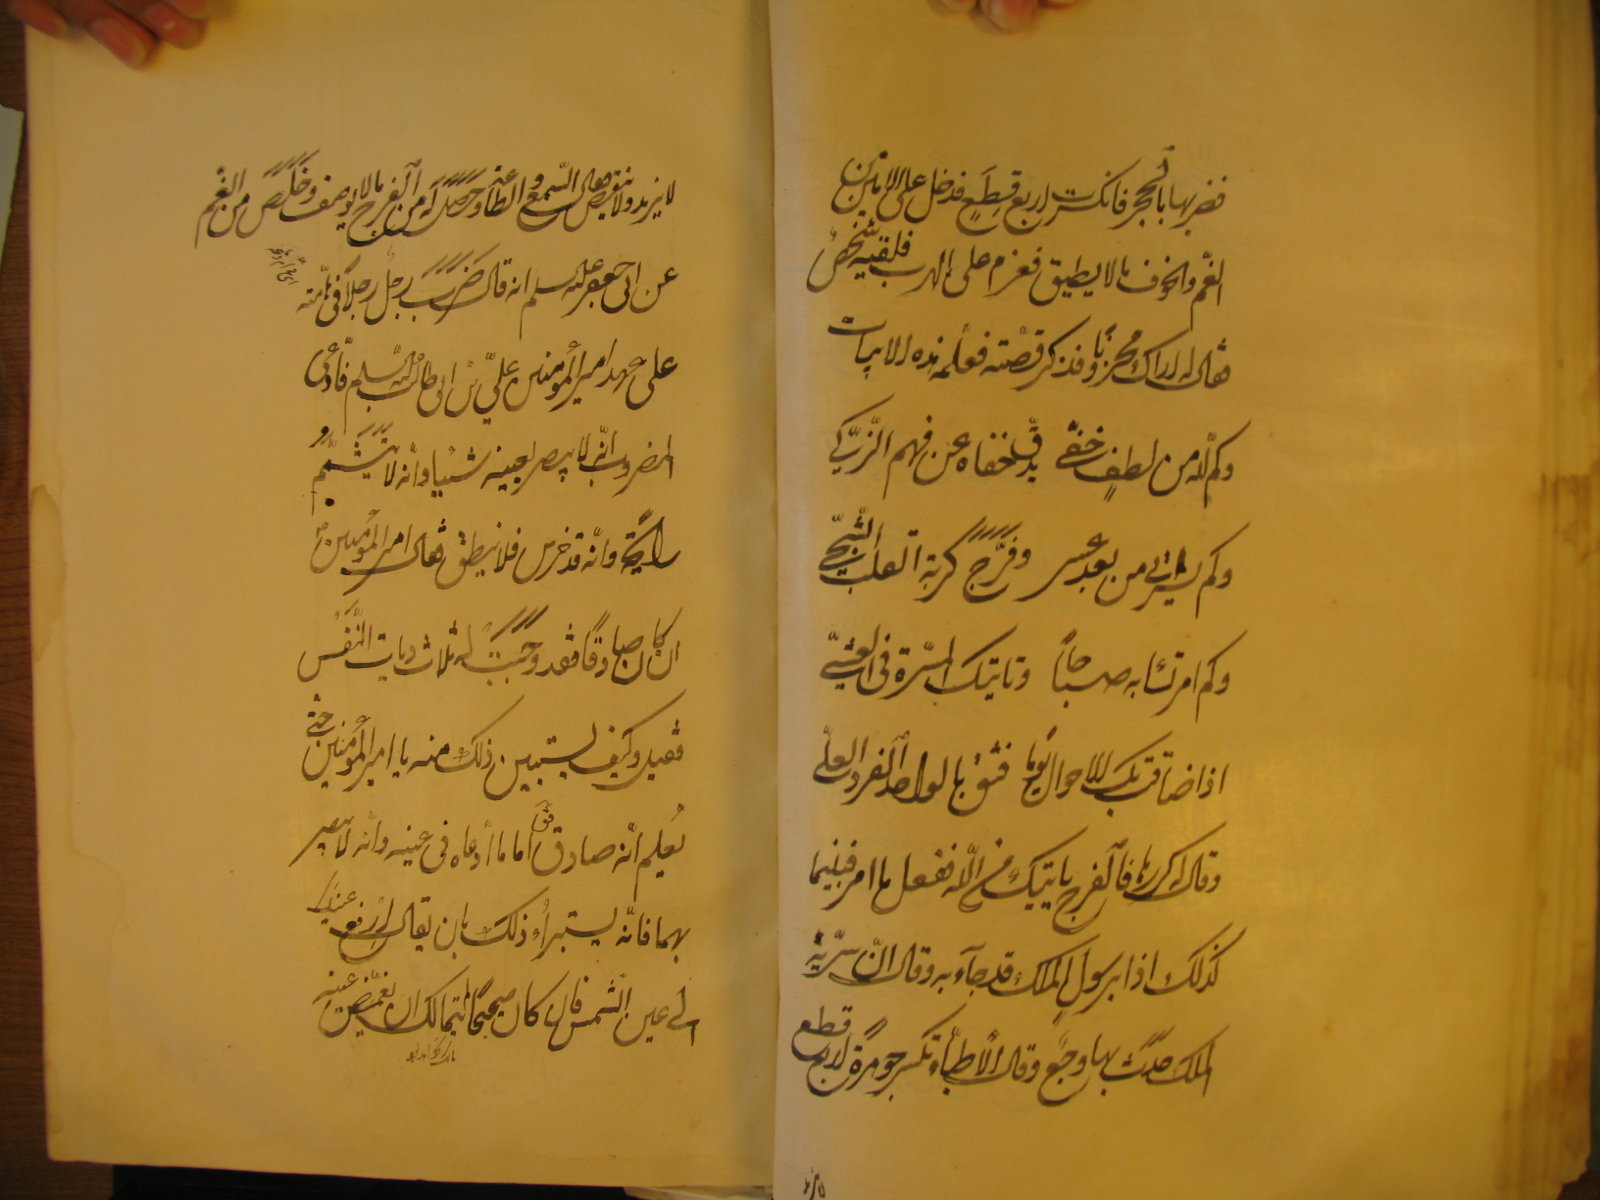 فضربها بالحجر فانكسرت اربع قطع فدخل على الامانين
الغم والخوف ما لا يطيق فعزم على الهرب فلقيه شخص
فقال له اراك محزونا فذكر قصته فعلمه هذه الابيات
وكم لله من لطف خفي يدق خفاه عن فهم الزكي
وكم يسر اتى من بعد عسر وفرج كربة القلب الشجي
وكم امر تساء به صباحا وتاتيك المسرة في العشي
اذا ضاقت بك الاحوال يوما فثق بالواحد الفرد العلي
وقال له كررها فالفرج ياتيك من الله ففعل ما امر فبينما
كذلك اذا برسول الملك قد جاء به وقال ان سرية
الملك حدث بها وجع وقال الاطباء تكسر جوهرة اربع قطع
لا يزيد ولا ينقص فقال السمع والطاعة وحصل له من الفرج ما لا يوصف وخلص من الغم
عن ابي جعفر عليه السلم انه قال ضرب رجل رجلا في هامته
على عهد امير المؤمنين علي بن ابي طالب عليه السلم فادعى
المضروب انه لا يبصر بعينه شيئا وانه لا يتشمم
رائحة وانه قد خرس فلا ينطق فقال امير المؤمنين ع
ان كان صادقا فقد وجبت له ثلاث ديات النفس
فقيل وكيف يستبين ذلك منه يا امير المؤمنين حتى
نعلم انه صادق فق اما ما ادعاه في عينيه وانه لا يبصر
بهما فانه يستبرأ ذلك بان يقال له ارفع عينيك
الى عين الشمس فان كان صحيحا لم يتمالك ان يغمض عينيه